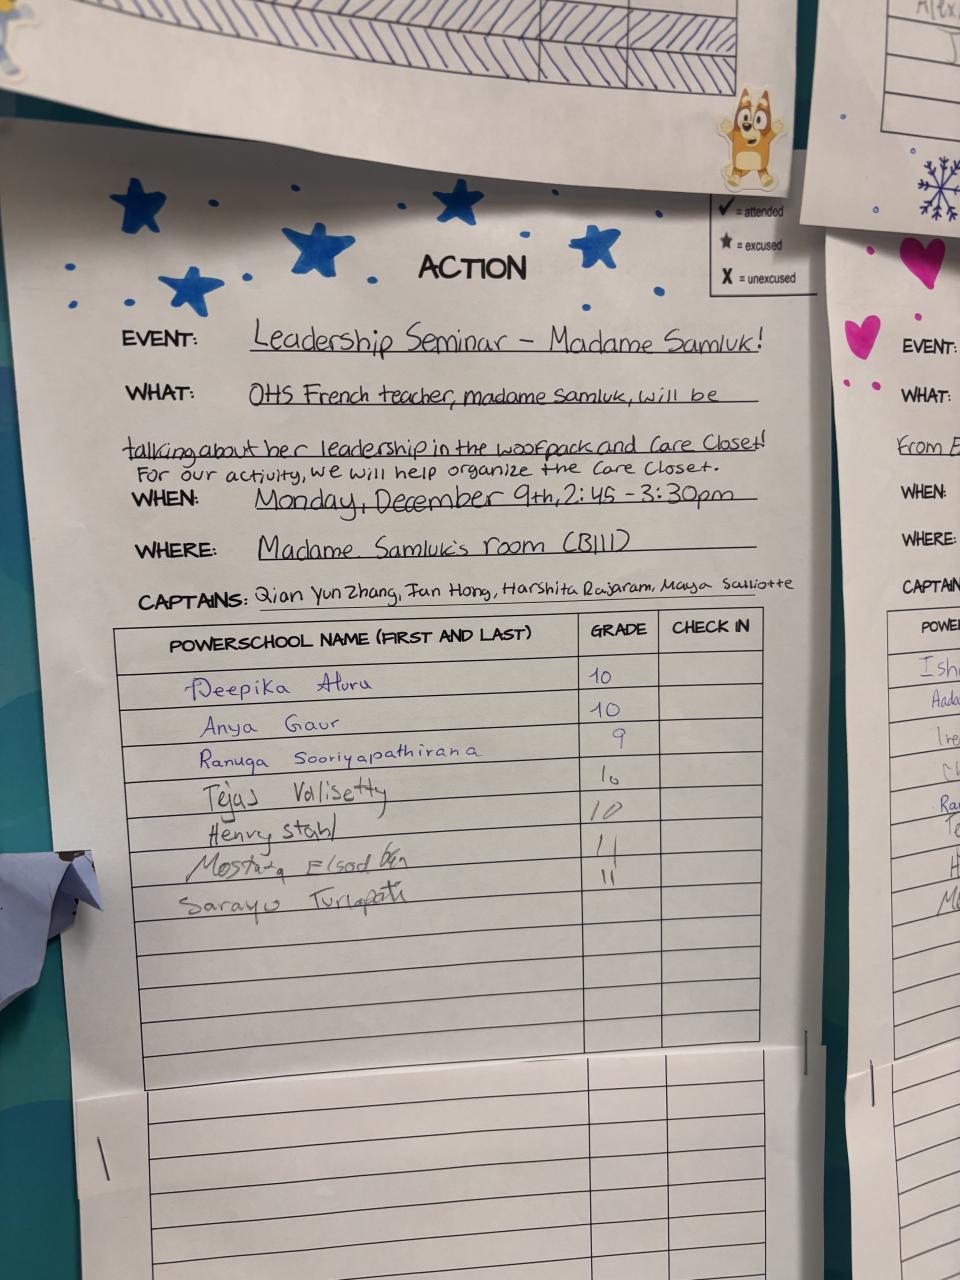 ✓ = attended
★ = excused
X = unexcused
ACTION
EVENT: Leadership Seminar - Madame Samluk!
WHAT: OHS French teacher, madame samluk, will be
talking about her leadership in the woofpack and Care Closet!
For our activity, we will help organize the Care Closet.
WHEN: Monday, December 9th, 2:45 - 3:30pm
WHERE: Madame Samluk's room (B111)
CAPTAINS: Qian Yun Zhang, Jun Hong, Harshita Rajaram, Maya Salliotte
POWERSCHOOL NAME (FIRST AND LAST) GRADE CHECK IN
Deepika Aluru 10
Anya Gaur 10
Ranuga Sooriyapathirana 9
Tejas Valisetty 10
Henry Stahl 10
Mostafa 11
Sarayu Turlapati 11
EVENT:
WHAT:
From E
WHEN:
WHERE:
CAPTAIN
POWE
Ish
Aada
Ire
Ra
Te
H
Mo